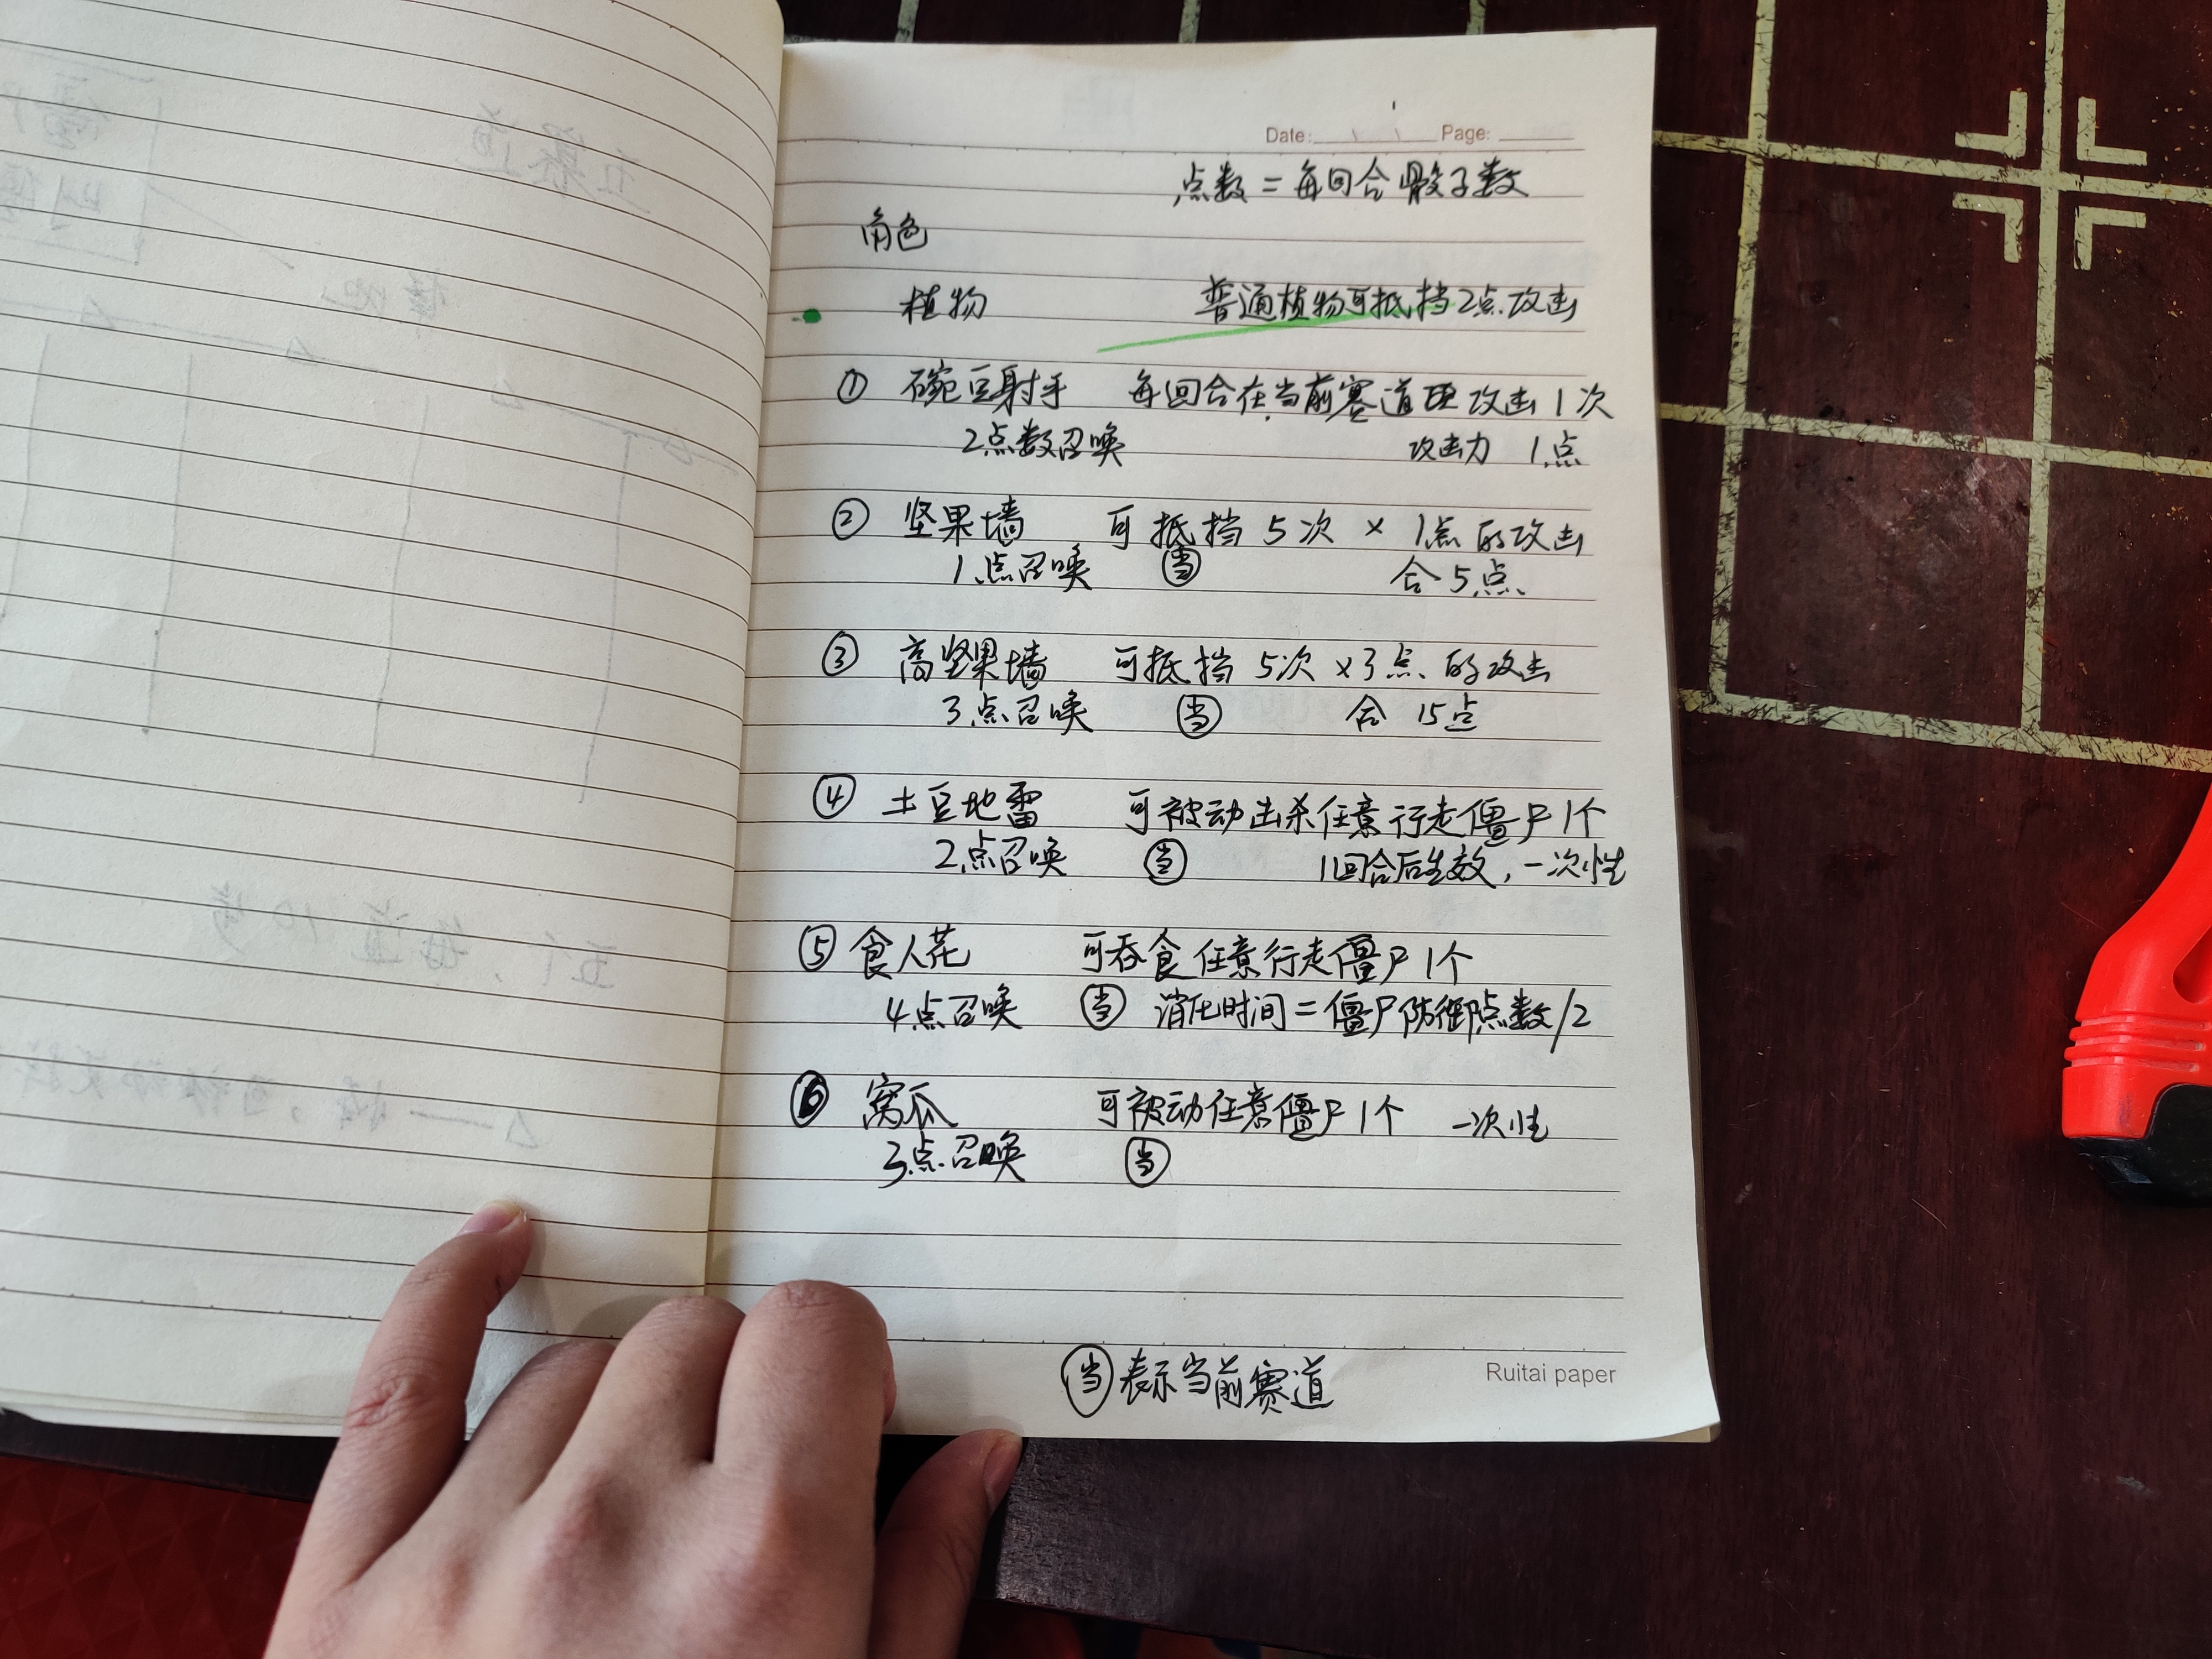 Date: Page:
点数 = 每回合骰子数
角色
植物 普通植物可抵挡2点攻击
① 碗豆射手 每回合在当前赛道 攻击1次
2点数召唤 攻击力 1点
② 坚果墙 可抵挡5次 × 1点的攻击
1点召唤 当 合5点
③ 高坚果墙 可抵挡5次 ×3点的攻击
3点召唤 当 合 15点
④ 土豆地雷 可被动击杀任意行走僵尸1个
2点召唤 当 1回合后生效,一次性
⑤ 食人花 可吞食任意行走僵尸1个
4点召唤 当 消化时间=僵尸防御点数/2
⑥ 窝瓜 可被动任意僵尸1个 一次性
3点召唤 当
当 表示当前赛道
Ruitai paper